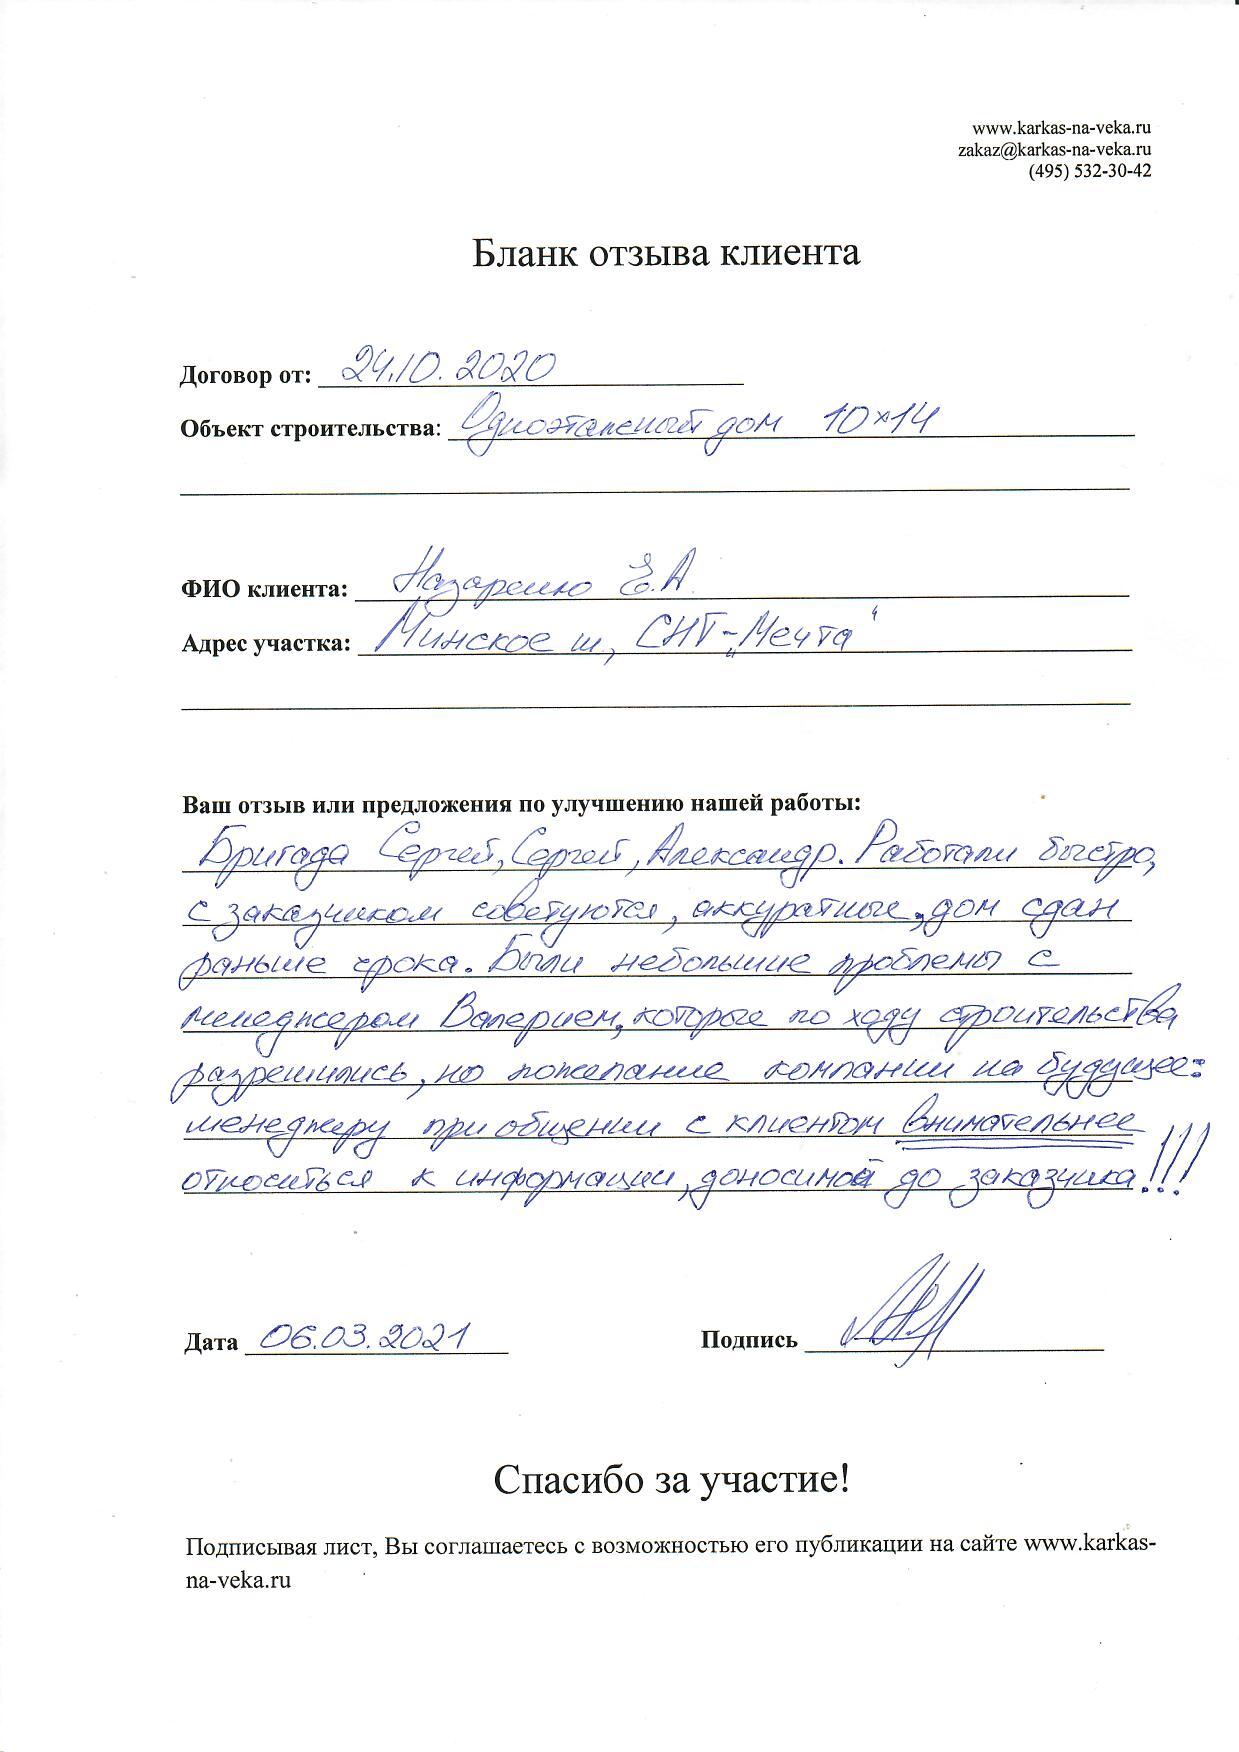 www.karkas-na-veka.ru
zakaz@karkas-na-veka.ru
(495) 532-30-42
Бланк отзыва клиента
Договор от: 24.10.2020
Объект строительства: Одноэтажный дом 10×14
ФИО клиента: Назаренко Е.А.
Адрес участка: Минское ш., СНТ-„Мечта“
Ваш отзыв или предложения по улучшению нашей работы:
Бригада Сергей, Сергей, Александр. Работали быстро,
с заказчиком советуются, аккуратные, дом сдан
раньше срока. Были небольшие проблемы с
менеджером Валерием, которые по ходу строительства
разрешились, но пожелание компании на будущее:
менеджеру при общении с клиентом внимательнее
относиться к информации, доносимой до заказчика!!!
Дата 06.03.2021 Подпись
Спасибо за участие!
Подписывая лист, Вы соглашаетесь с возможностью его публикации на сайте www.karkas-
na-veka.ru